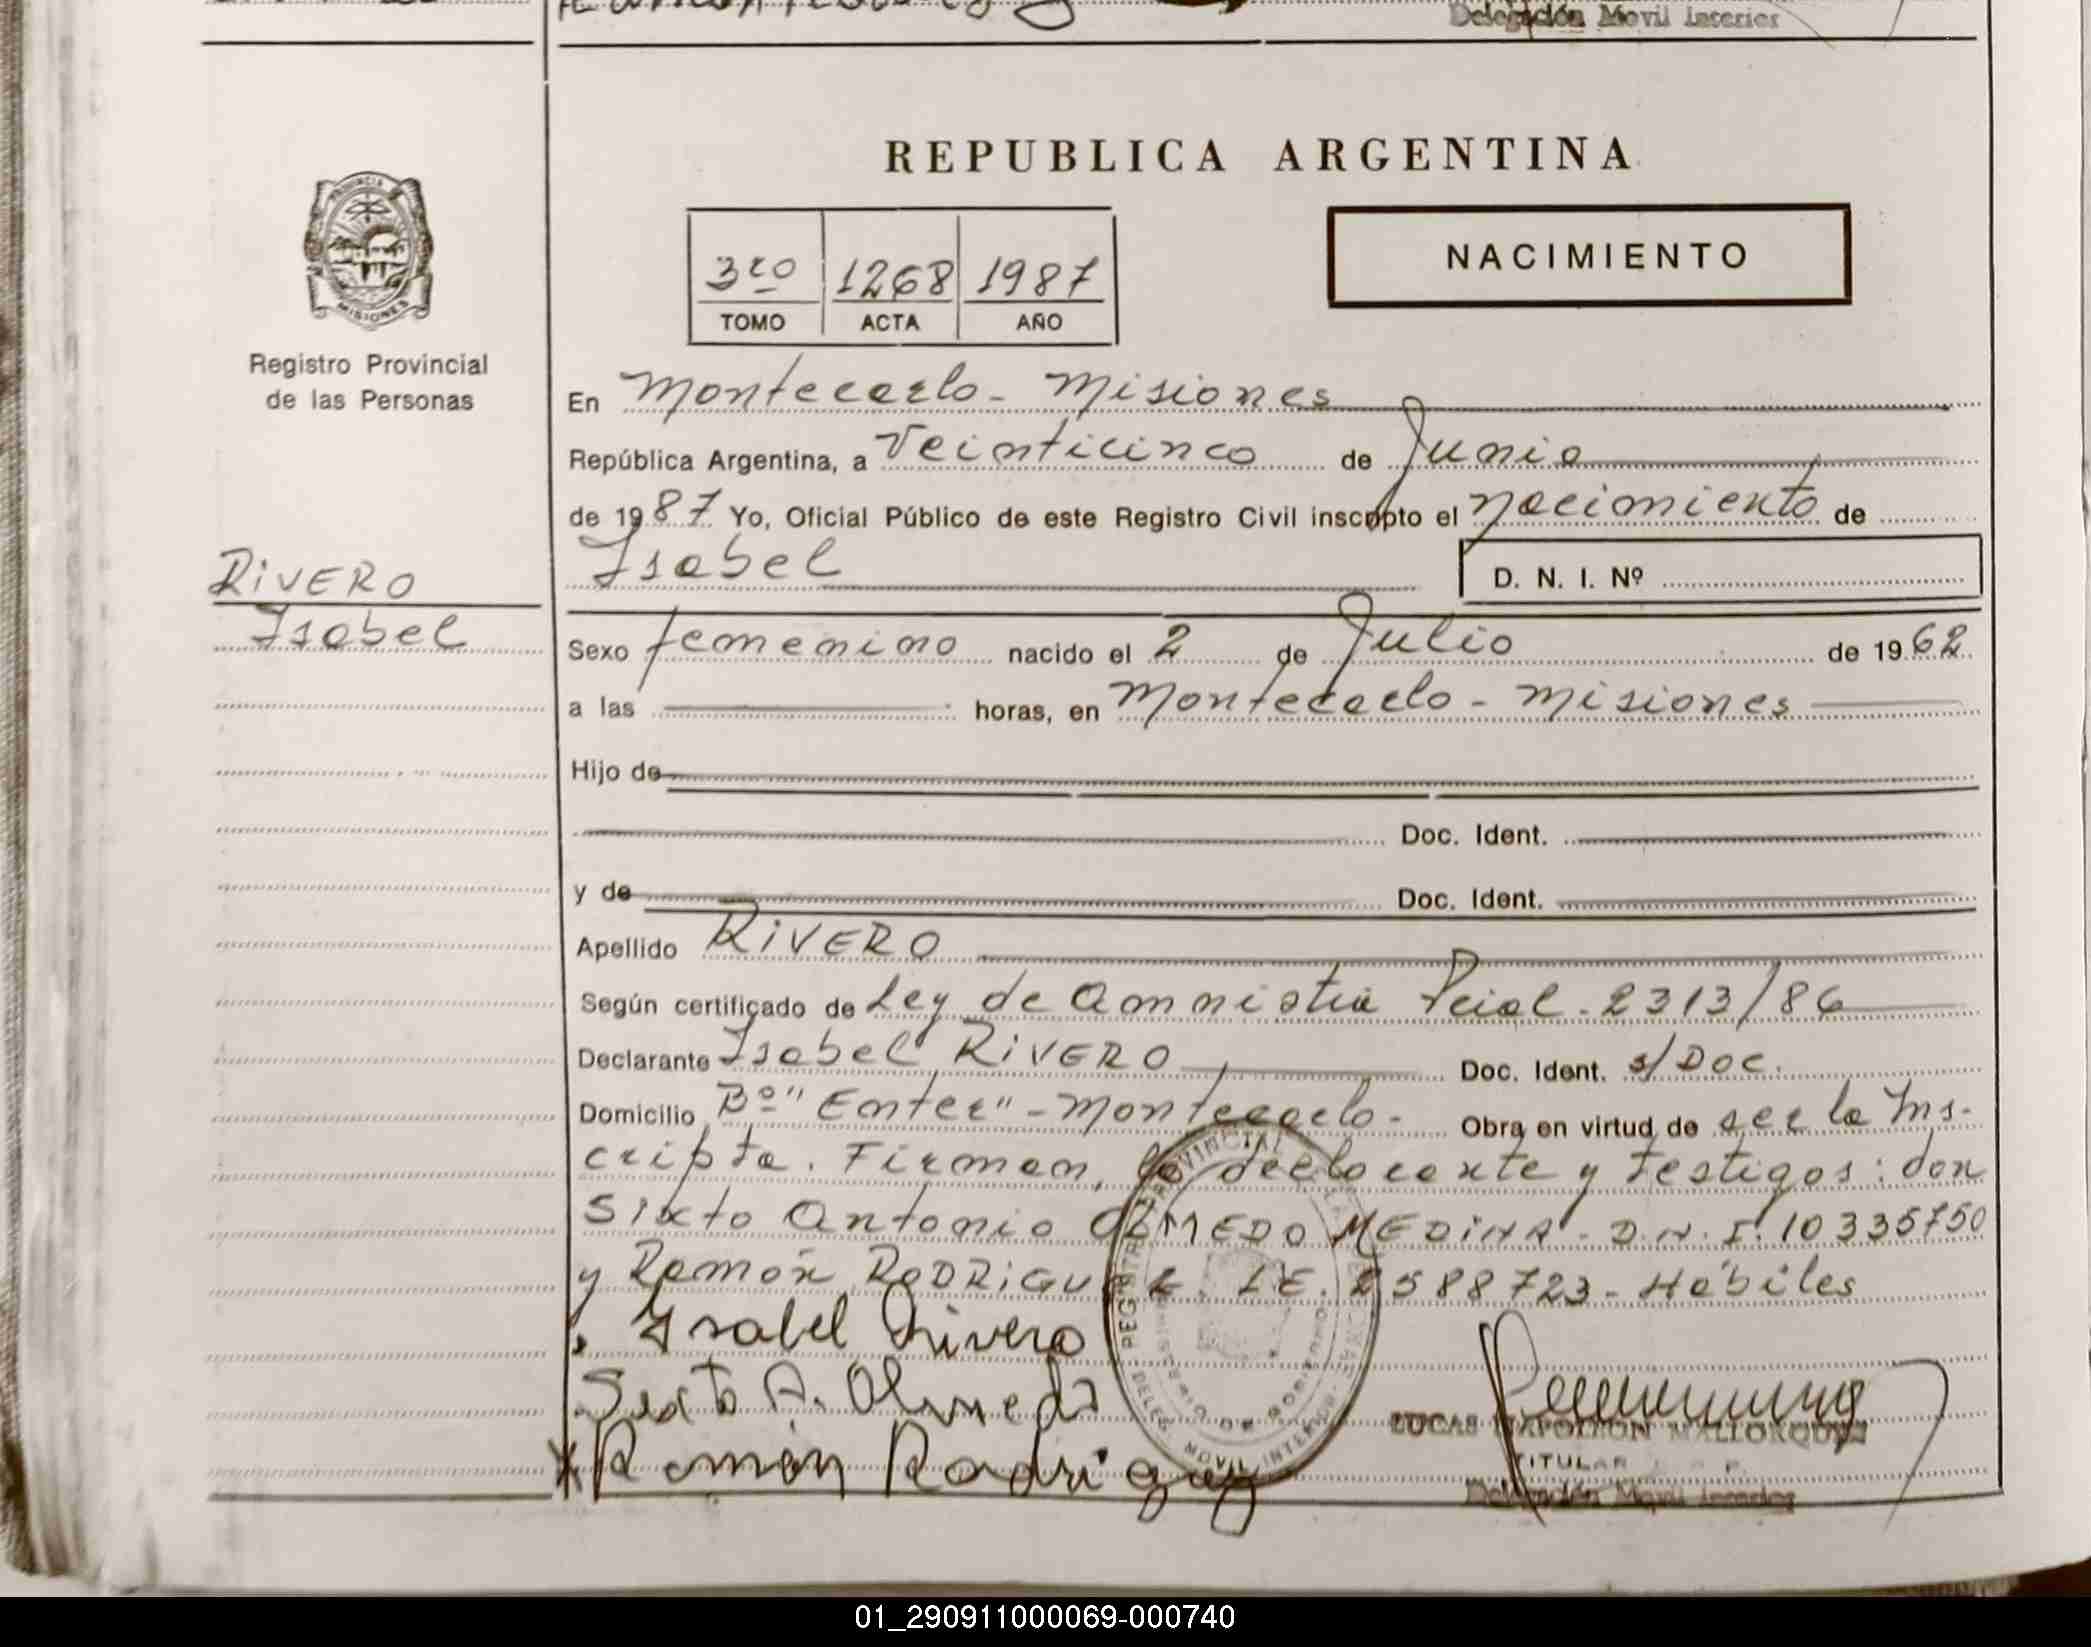 Delegación Movil Interior
REPUBLICA ARGENTINA
PROVINCIA
MISIONES
3ro 1268 1987
TOMO ACTA AÑO
NACIMIENTO
Registro Provincial
de las Personas
En Montecarlo - Misiones
República Argentina, a Veinticinco de Junio
de 1987 Yo, Oficial Público de este Registro Civil inscripto el nacimiento de
Isabel
D. N. I. Nº
RIVERO
Isabel
Sexo femenino nacido el 2 de Julio de 1962
a las horas, en Montecarlo - Misiones
Hijo de
Doc. Ident.
y de Doc. Ident.
Apellido RIVERO
Según certificado de Ley de Amnistia Pcial. 2313/86
Declarante Isabel RIVERO Doc. Ident. s/Doc.
Domicilio Bº "Enter" - Montecarlo - Obra en virtud de ser la Ins-
cripta. Firman, la declarante y testigos: don
Sixto Antonio OLMEDO MEDINA - D.N.I. 10335750
y Ramón RODRIGUEZ. L.E. 2588723 - Hábiles
Isabel Rivero
Sixto A. Olmedo
Ramón Rodriguez
LUCAS NAPOLEON MALLORQUIN
TITULAR
Delegación Movil Interior
01_290911000069-000740